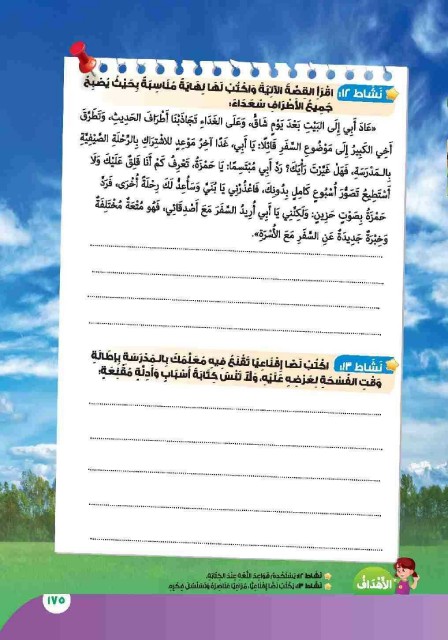 نَشَاط ١٢: اقْرَأِ القِصَّةَ الآتِيَةَ وَاكْتُبْ لَهَا نِهَايَةً مُنَاسِبَةً بِحَيْثُ يُصْبِحُ
جَمِيعُ الأَطْرَافِ سُعَدَاءَ:
«عَادَ أَبِي إِلَى البَيْتِ بَعْدَ يَوْمٍ شَاقٍّ، وَعَلَى الغَدَاءِ تَجَاذَبْنَا أَطْرَافَ الحَدِيثِ، وَتَطَرَّقَ
أَخِي الكَبِيرُ إِلَى مَوْضُوعِ السَّفَرِ قَائِلًا: يَا أَبِي، غَدًا آخِرُ مَوْعِدٍ لِلاشْتِرَاكِ بِالرِّحْلَةِ الصَّيْفِيَّةِ
بِالمَدْرَسَةِ، فَهَلْ غَيَّرْتَ رَأْيَكَ؟ رَدَّ أَبِي مُبْتَسِمًا: يَا حَمْزَةُ، تَعْرِفُ كَمْ أَنَا قَلِقٌ عَلَيْكَ وَلَا
أَسْتَطِيعُ تَصَوُّرَ أُسْبُوعٍ كَامِلٍ بِدُونِكَ، فَاعْذُرْنِي يَا بُنَيَّ وَسَأُعِدُّ لَكَ رِحْلَةً أُخْرَى، فَرَدَّ
حَمْزَةُ بِصَوْتٍ حَزِينٍ: وَلَكِنَّنِي يَا أَبِي أُرِيدُ السَّفَرَ مَعَ أَصْدِقَائِي، فَهُوَ مُتْعَةٌ مُخْتَلِفَةٌ
وَخِبْرَةٌ جَدِيدَةٌ عَنِ السَّفَرِ مَعَ الأُسْرَةِ».
نَشَاط ١٣: اكْتُبْ نَصًّا إِقْنَاعِيًّا تُقْنِعُ فِيهِ مُعَلِّمَكَ بِالمَدْرَسَةِ بِإِطَالَةِ
وَقْتِ الفُسْحَةِ لِعَرْضِهِ عَلَيْهِ، وَلَا تَنْسَ كِتَابَةَ أَسْبَابٍ وَأَدِلَّةٍ مُقْنِعَةٍ:
الأَهْدَافُ
نَشَاط ١٢: يَسْتَخْدِمُ قَوَاعِدَ اللُّغَةِ عِنْدَ الكِتَابَةِ.
نَشَاط ١٣: يَكْتُبُ نَصًّا إِقْنَاعِيًّا، مُرَاعِيًا عَنَاصِرَهُ وَتَسَلْسُلَ فِكَرِهِ.
١٧٥